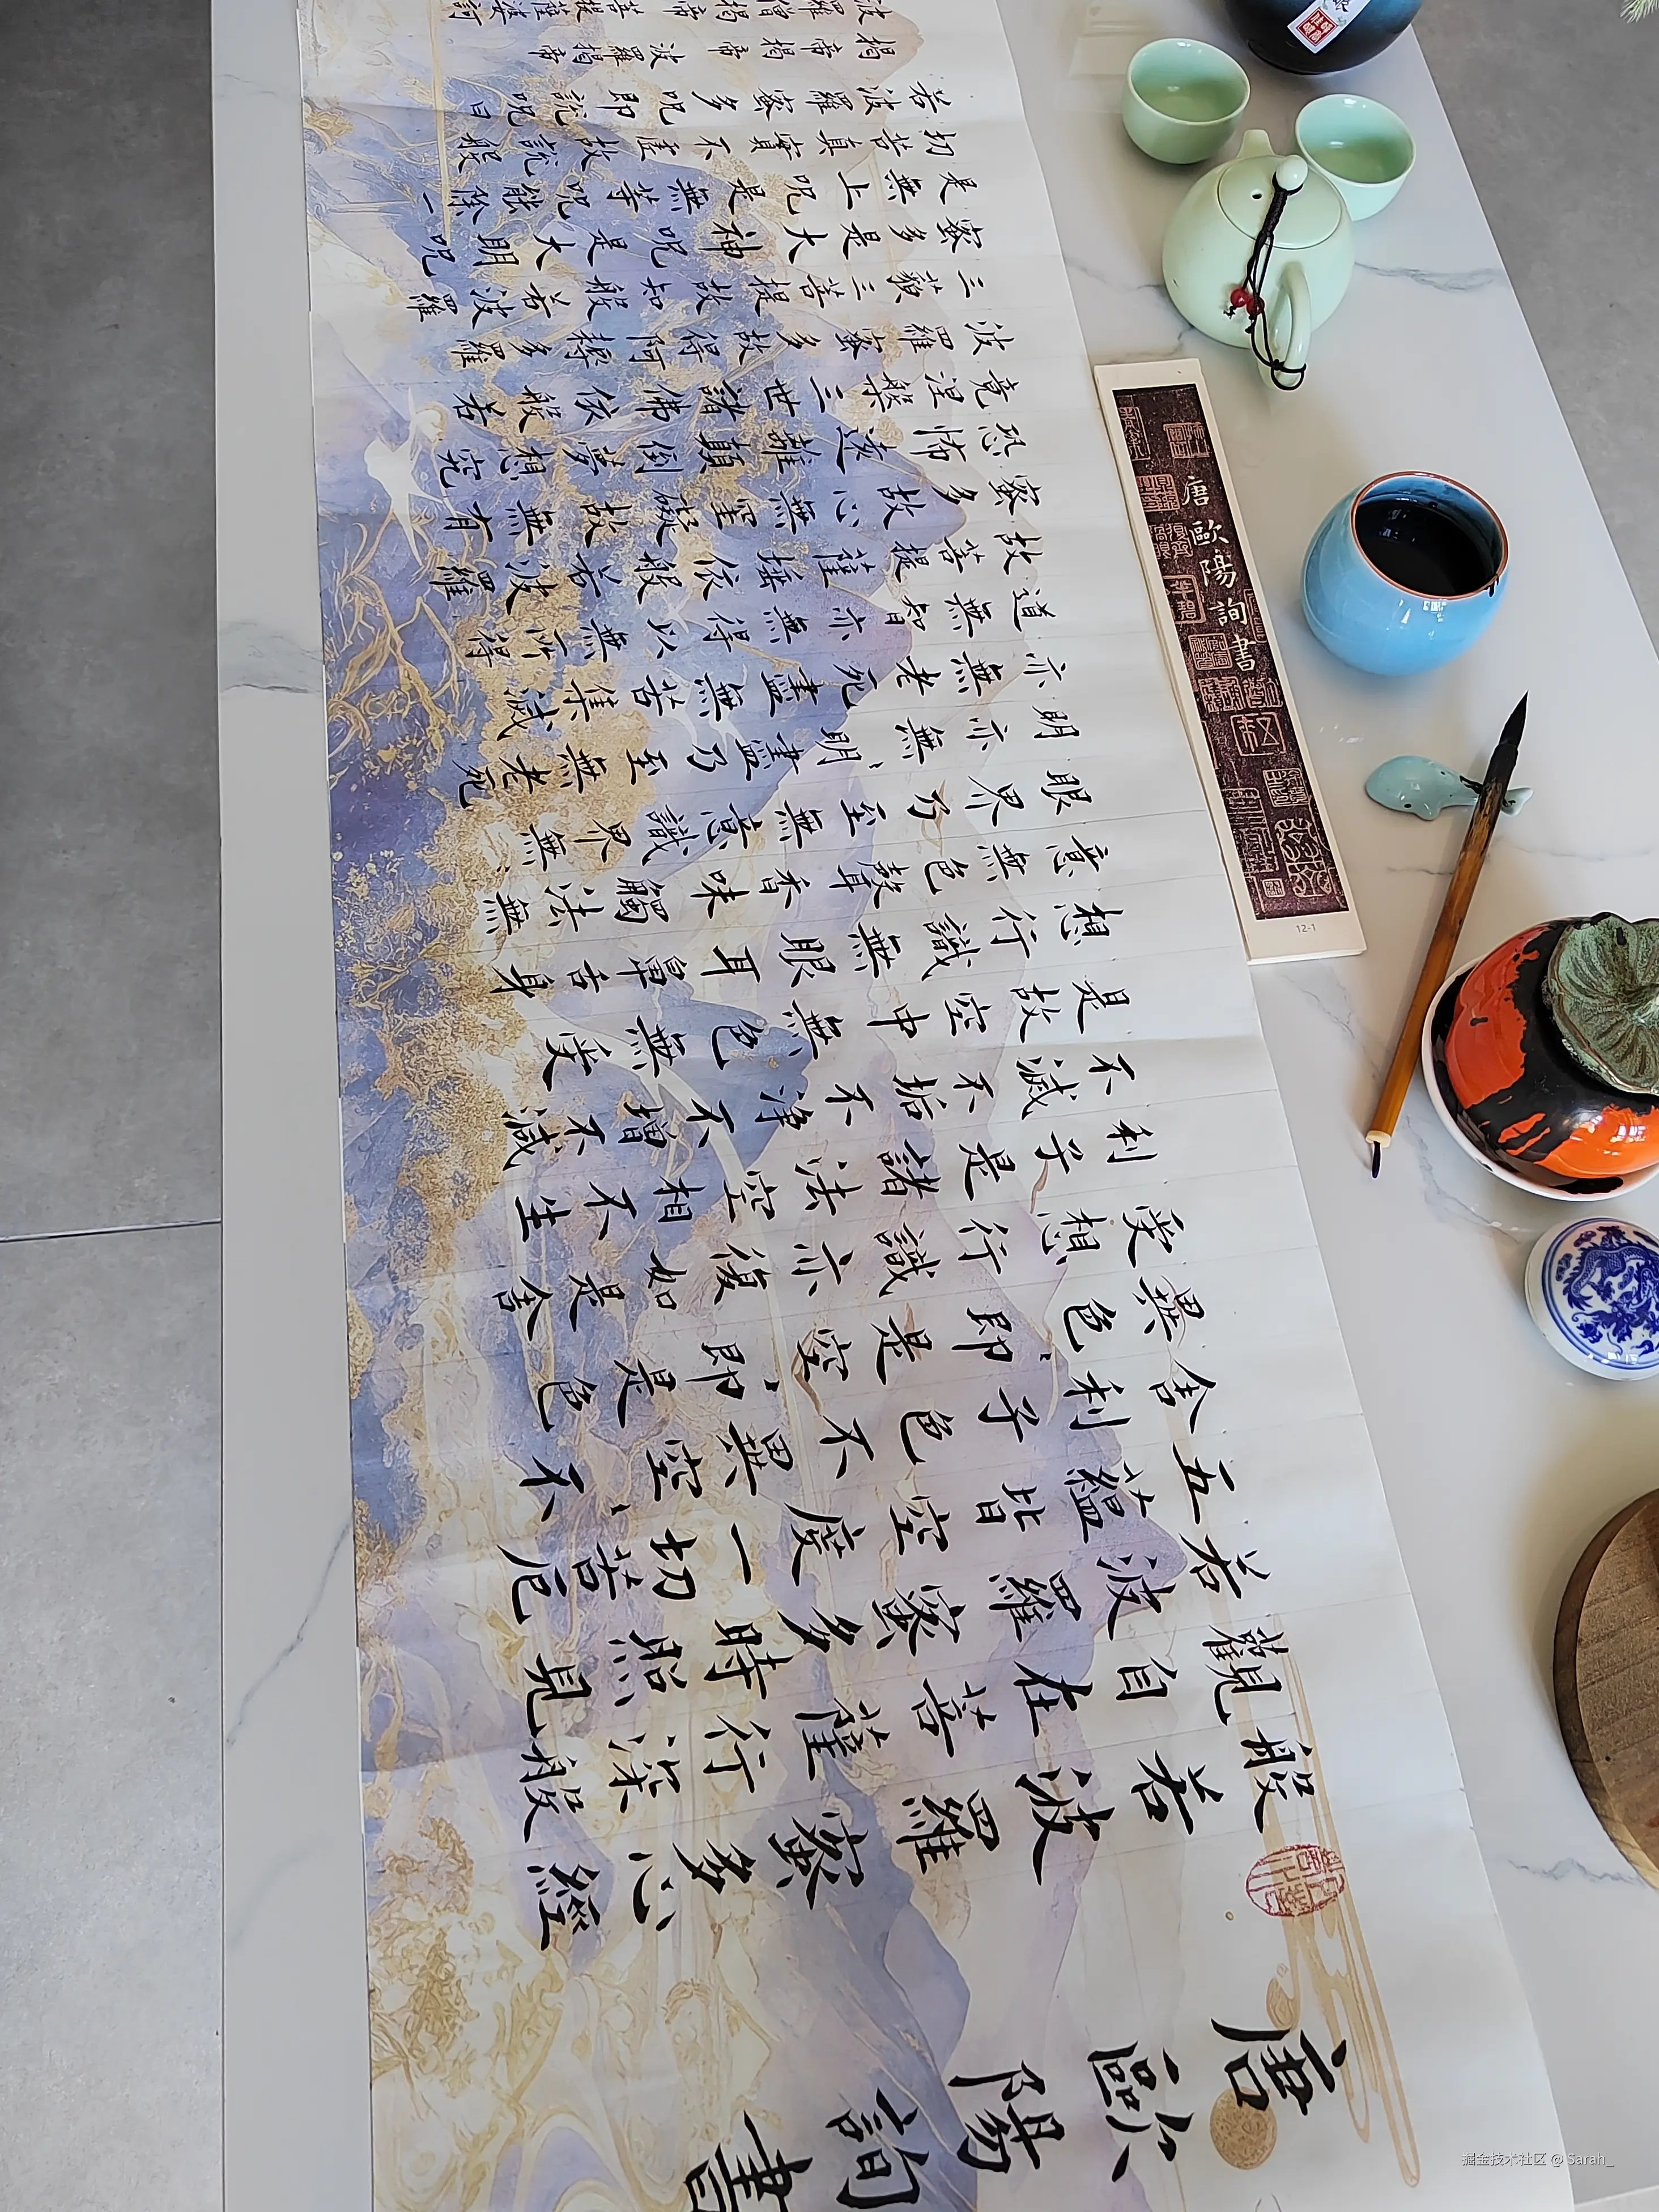 唐歐陽詢書
般若波羅蜜多心經
觀自在菩薩行深般
若波羅蜜多時照見
五蘊皆空度一切苦厄
舍利子色不異空、不
異色、即是空、即是色
受想行識亦復如是舍
利子是諸法空相不生
不滅不垢不淨不增不減
是故空中無色無受
想行識無眼耳鼻舌身
意無色聲香味觸法無
眼界乃至無意識界無、
明亦無明、盡乃至無老死
亦無老死盡無苦集滅
道無智亦無得以無所得
故菩提薩埵依般若波羅
蜜多故心無罣礙故無有
恐怖遠離顛倒夢想究
竟涅槃三世諸佛依般若
波羅蜜多故得阿耨多羅
三藐三菩提故知般若波羅
蜜多是大神呪是大明呪
是無上呪是無等呪能除一
切苦真實不虛故說般
若波羅蜜多呪即說呪曰
揭帝揭帝波羅揭帝
波羅僧揭帝菩提薩婆訶
唐歐陽詢書
12-1
掘金技术社区 @ Sarah_